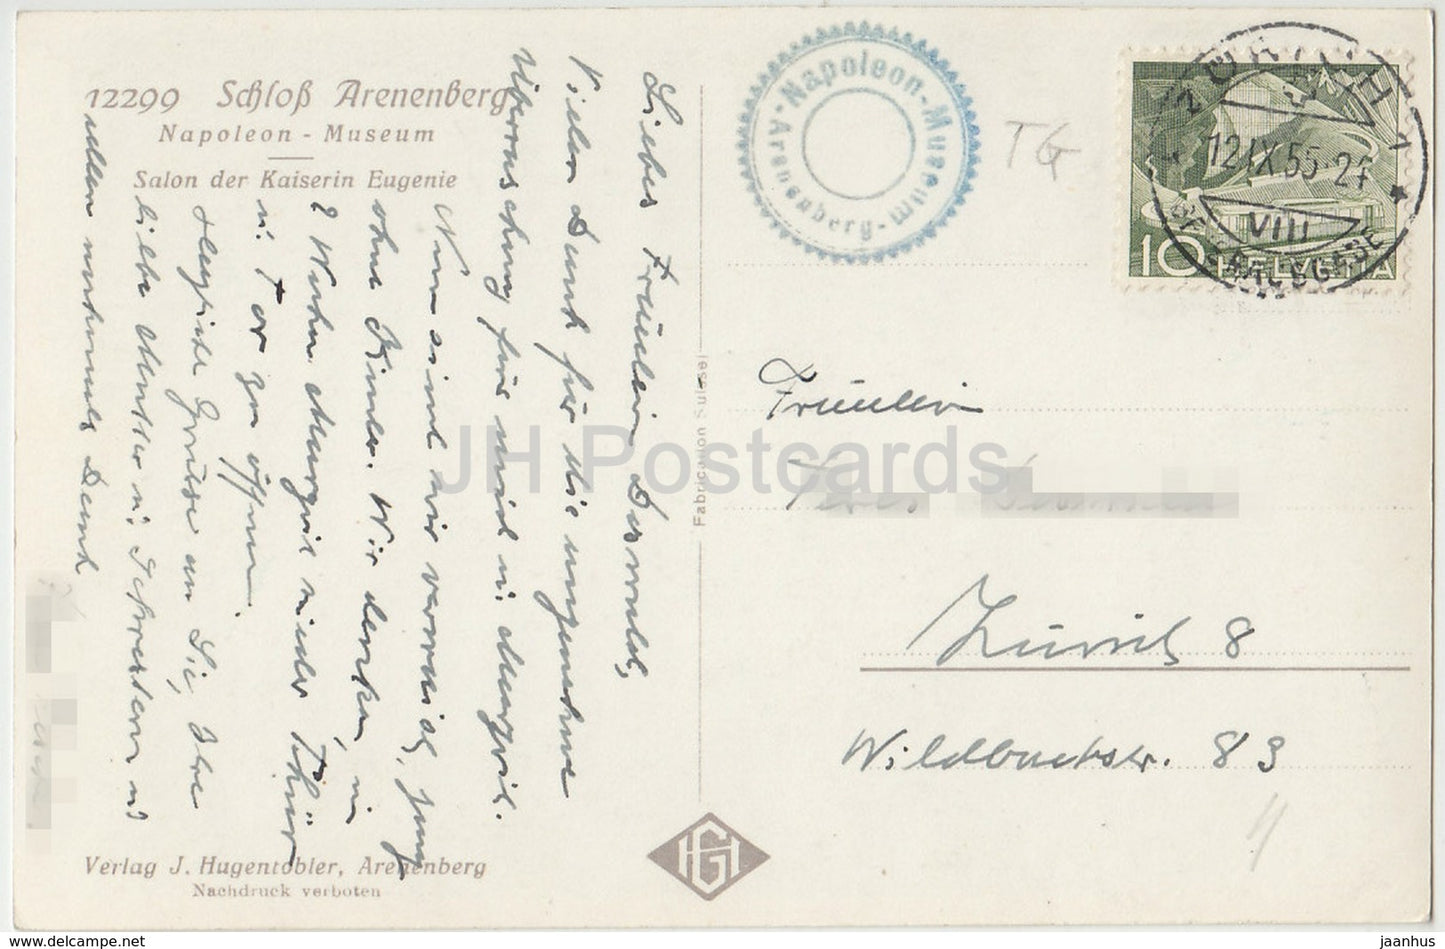 12299 Schloß Arenenberg
Napoleon - Museum
Salon der Kaiserin Eugenie
Liebes Fräulein
Vielen Dank für die angenehme
Überraschung für mich u. Margrit.
Nun sind wir
ohne Kinder. Wir denken, in
2 Wochen Margrit wieder Thür
u. Tor zu öffnen.
Herzliche Grüsse an Sie, Ihre
liebe Mutter u. Schwestern u.
allen nochmals Dank
Verlag J. Hugentobler, Arenenberg
Nachdruck verboten
Fabrication Suisse
HG
Napoleon-Museum Arenenberg
TG
ZÜRICH
12.IX.55-21
VIII
10 HELVETIA
Fräulein
Zürich 8
Wildbachstr. 83
JH Postcards
www.delcampe.net
jaanhus